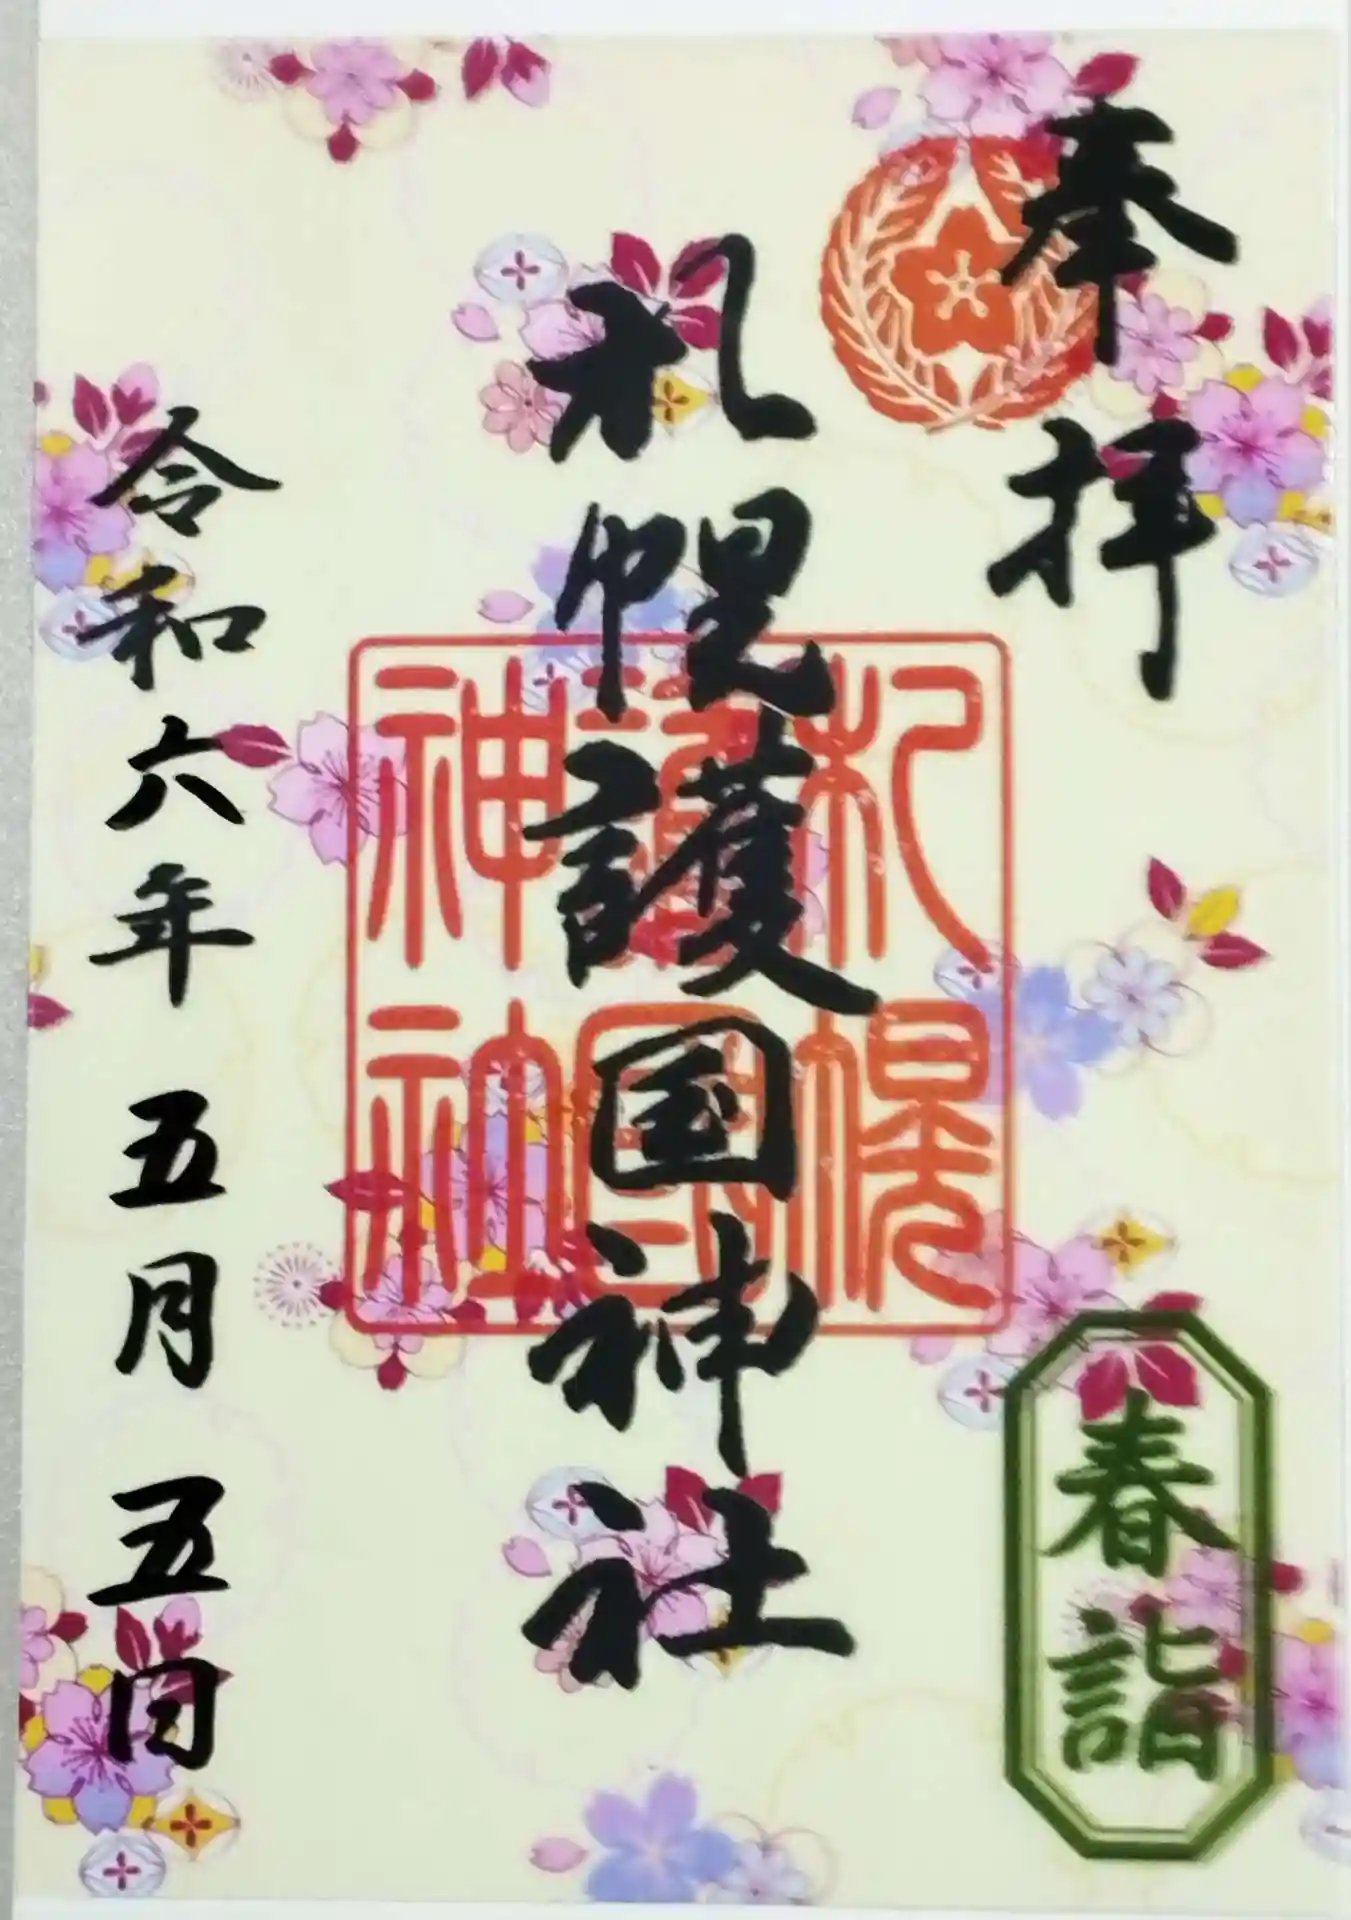 奉拝
札幌護国神社
札幌
護國
神社
令和六年 五月 五日
春詣